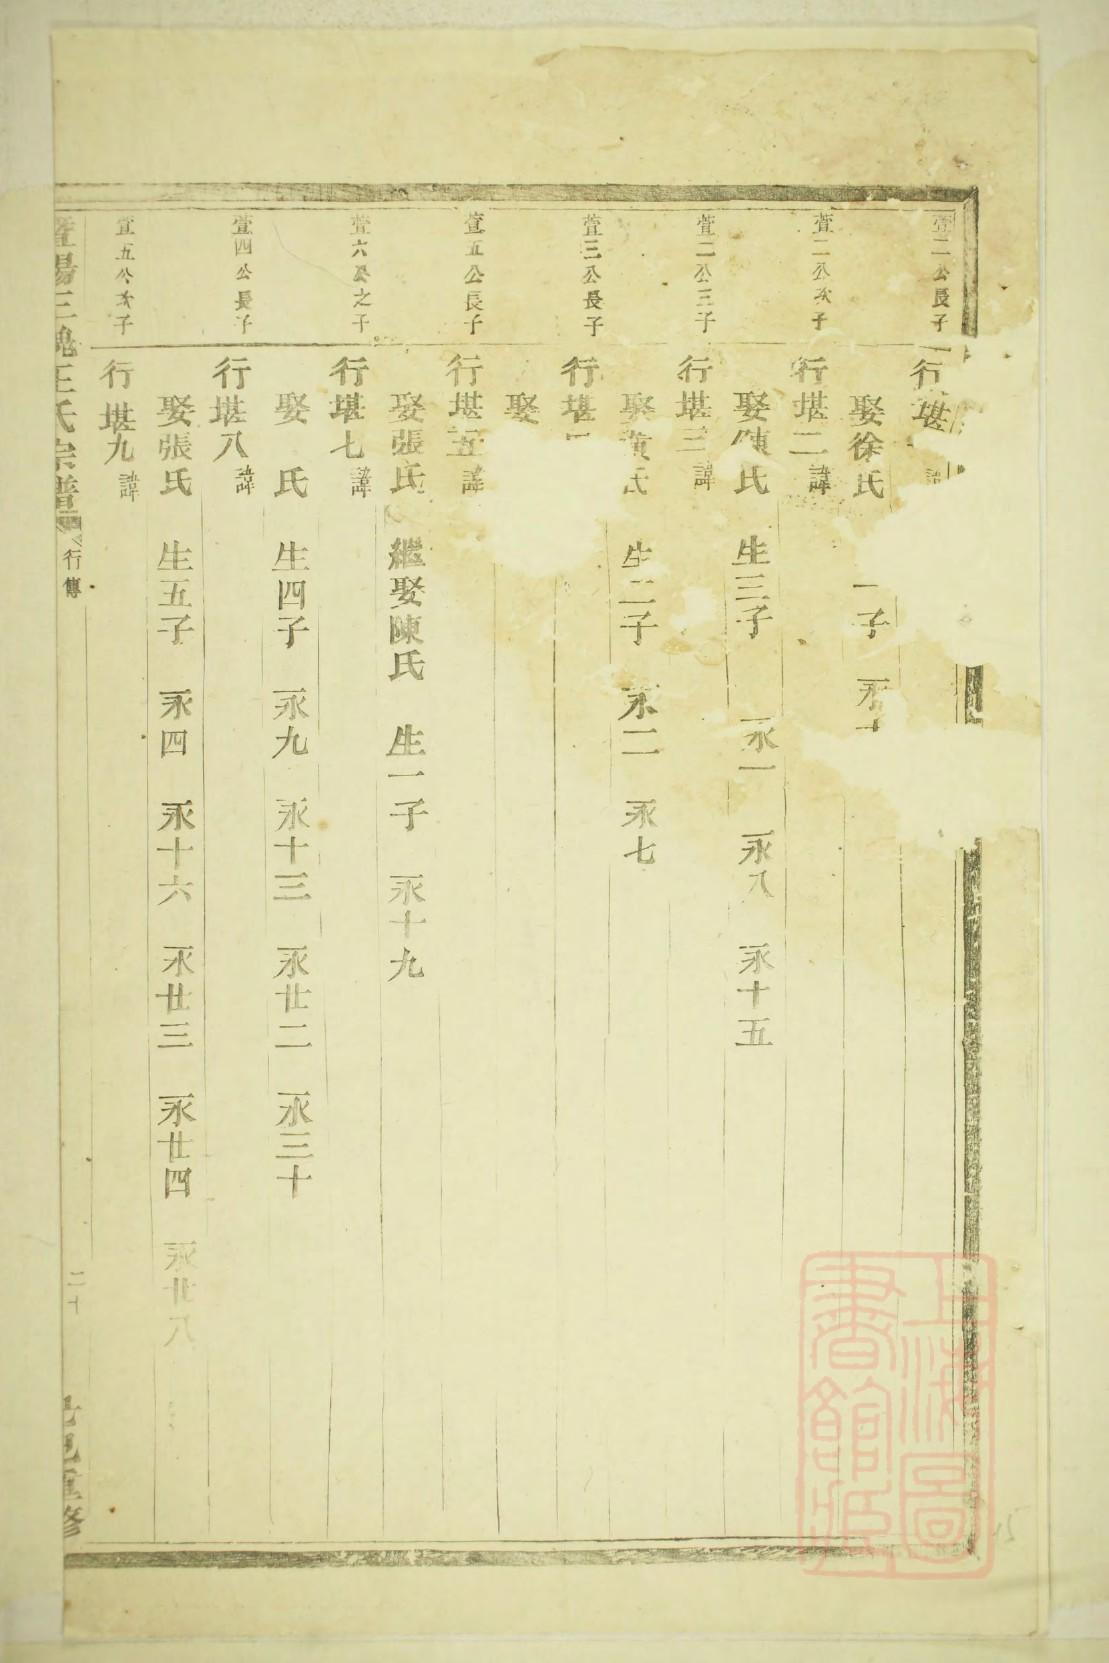 萱二公長子
行堪
娶徐氏 一子 永十
萱二公次子
行堪二 諱
娶陳氏 生三子 永一 永八 永十五
萱二公三子
行堪三 諱
娶黃氏 生二子 永二 永七
萱三公長子
行堪
娶
萱五公長子
行堪五 諱
娶張氏 繼娶陳氏 生一子 永十九
萱六公之子
行堪七 諱
娶 氏 生四子 永九 永十三 永廿二 永三十
萱四公長子
行堪八 諱
娶張氏 生五子 永四 永十六 永廿三 永廿四 永廿八
萱五公次子
行堪九 諱
暨陽三槐王氏宗譜 行傳 二十 重修
上海圖書館藏